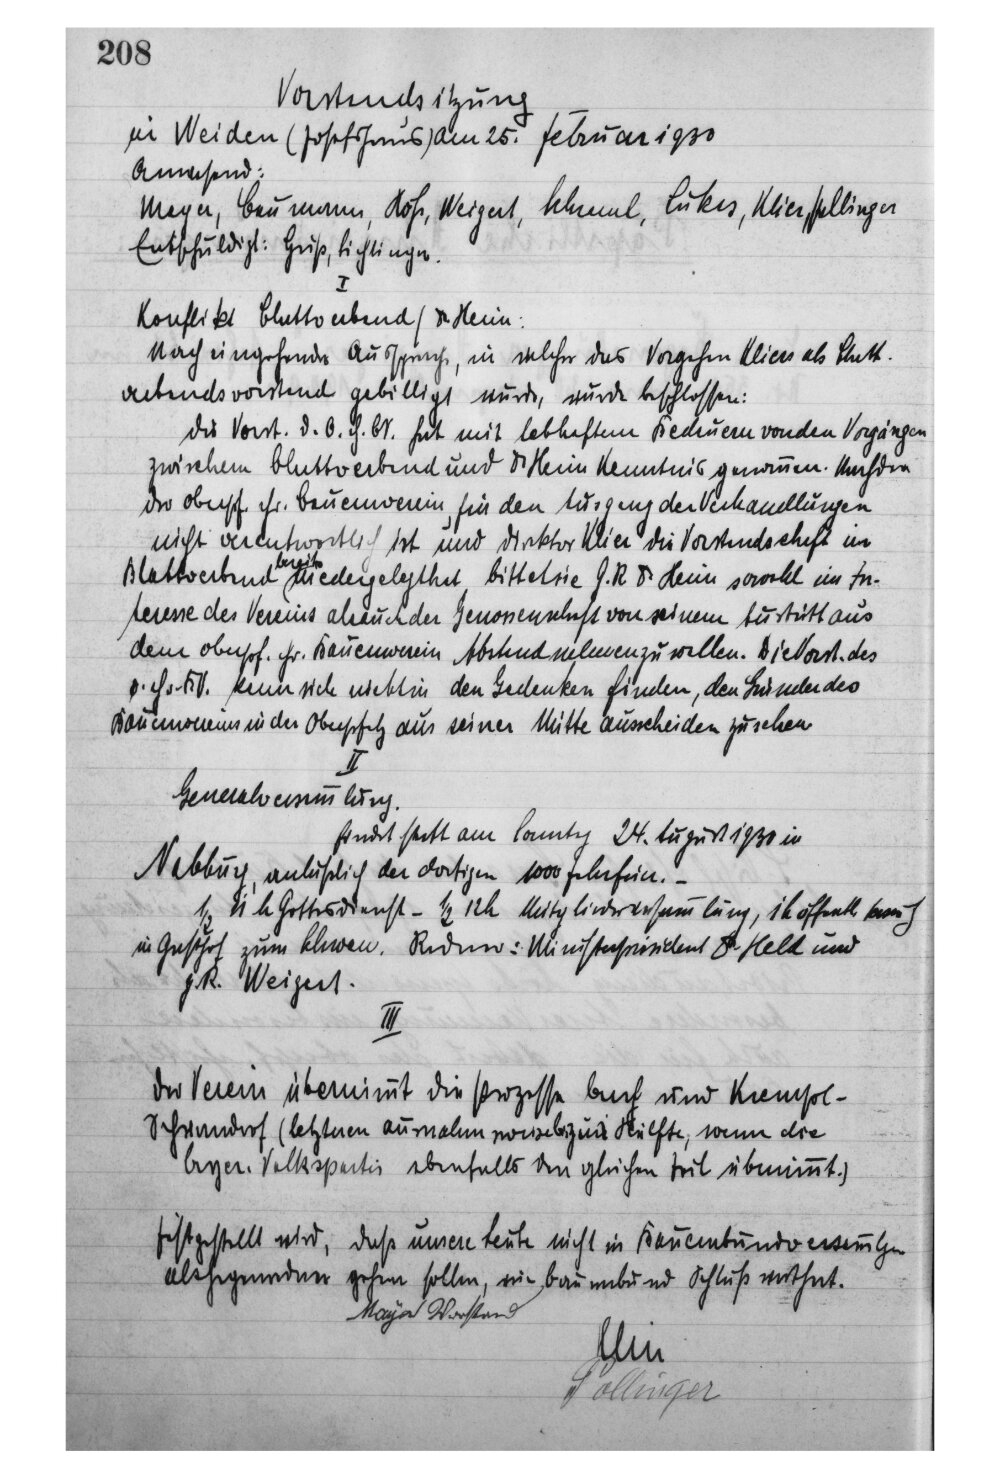 208
Vorstandsitzung
in Weiden (Josefshaus) am 25. Februar 1930
Anwesend:
Mayer, Baumann, Höß, Weigert, Schraml, Lukas, Klier, Pollinger
Entschuldigt: Gruß, Lichtinger.
I
Konflikt Blattverband / Dr Heim:
Nach eingehender Aussprache, in welcher das Vorgehen Kliers als Blatt-
verbandsvorstand gebilligt wurde, wurde beschlossen:
Die Vorst. d. O. ch. BV. hat mit lebhaftem Bedauern von den Vorgängen
zwischem Blattverband und Dr Heim Kenntnis genom̅en. Nachdem
der oberpf. chr. Bauernverein für den Ausgang der Verhandlungen
nicht verantwortlich ist und Direktor Klier die Vorstandschaft im
Blattverband bereits niedergelegt hat, bittet sie G. R Dr Heim sowohl im In-
teresse des Vereins als auch der Genossenschaft von seinem Austritt aus
dem oberpf. chr. Bauernverein Abstand nehmen zu wollen. Die Vorst. des
o. ch. BV. kann sich nicht in den Gedanken finden, den Gründer des
Bauernvereins in der Oberpfalz aus seiner Mitte ausscheiden zu sehen
II
Generalversam̅lung.
findet statt am Sonntag 24. August 1930 in
Nabburg, anläßlich der dortigen 1000 Jahrfeier. –
½ 11 h Gottesdienst – ½ 12h Mitgliederversam̅lung, 1h öffentl.
in Gasthof zum Schwan. Redner: Ministerpräsident Dr Held und
G. R. Weigert.
III
Der Verein übernim̅t die Prozesse und
Schwandorf (letzteren ausnahmsweise bis zur Hälfte, wenn die
bayer. Volkspartei ebenfalls den gleichen Teil übernim̅t.)
Festgestellt wird, daß unsere Leute nicht in Bauernbundversam̅lgen
als Gegenredner gehen sollen, wie Bauernbund Schluß
Mayer Vorstand
Klier
Pollinger